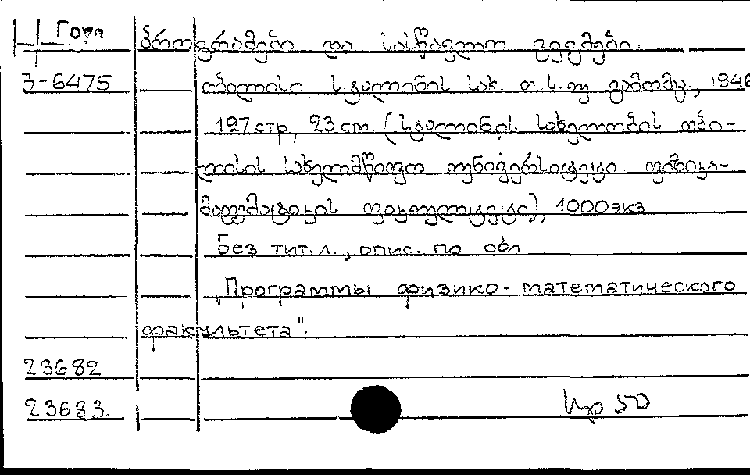 Груз პროგრამები და სასწავლო გეგმები.
3-6475 თბილისი სტალინის სახ. თ.ს.უ გამომც., 1946
127 стр, 23 cm. (სტალინის სახელობის თბი-
ლისის სახელმწიფო უნივერსიტეტი ფიზიკა-
მათემატიკის ფაკულტეტი), 1000 экз
Без тит. л., опис. по обл
„Программы физико-математического
факультета".
23682
23683. 50